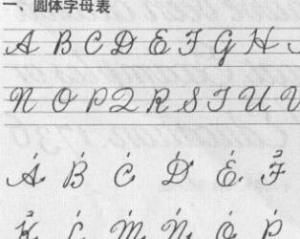 一、圆体字母表
A B C D E F G H
N O P Q R S T U V
A B C D E F
K L M N O P